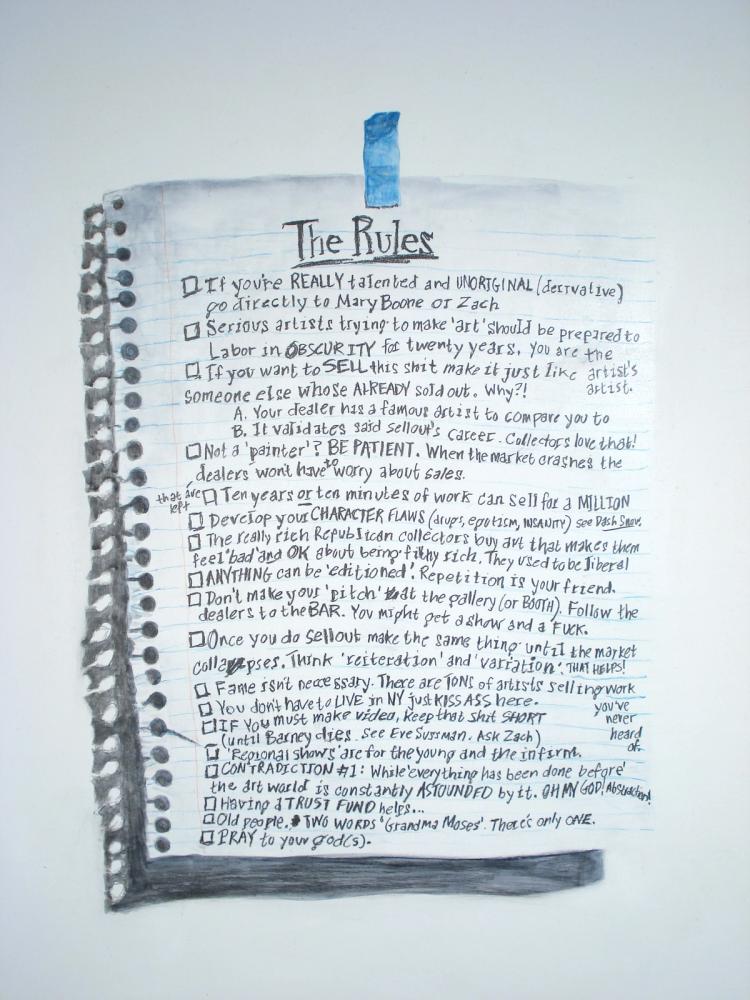 The Rules
If you're REALLY talented and UNORIGINAL (derivative)
go directly to Mary Boone or Zach
Serious artists trying to make 'art' should be prepared to
Labor in OBSCURITY for twenty years. You are the
artist's
artist.
If you want to SELL this shit make it just like
someone else whose ALREADY sold out. Why?!
A. Your dealer has a famous artist to compare you to
B. It validates said sellout's career. Collectors love that!
Not a 'painter'? BE PATIENT. When the market crashes the
dealers won't have to worry about sales.
that are
left
Ten years or ten minutes of work can sell for a MILLION
Develop your CHARACTER FLAWS (drugs, egotism, INSANITY) see Dash Snow.
The really rich Republican collectors buy art that makes them
feel 'bad' and OK about being filthy rich. They used to be liberal
ANYTHING can be 'editioned'. Repetition is your friend.
Don't make your 'pitch' at the gallery (or BOOTH). Follow the
dealers to the BAR. You might get a show and a FUCK.
Once you do sellout make the same thing until the market
collapses. Think 'reiteration' and 'variation'. THAT HELPS!
Fame isn't necessary. There are TONS of artists selling work
you've
never
heard
of.
You don't have to LIVE in NY just KISS ASS here.
IF YOU must make video, keep that shit SHORT
(until Barney dies. See Eve Sussman. Ask Zach)
'Regional shows' are for the young and the infirm.
CONTRADICTION #1: While 'everything has been done before'
the art world is constantly ASTOUNDED by it. OH MY GOD! Abstraction!
Having a TRUST FUND helps...
Old people. TWO WORDS 'Grandma Moses'. There's only ONE.
PRAY to your god(s).